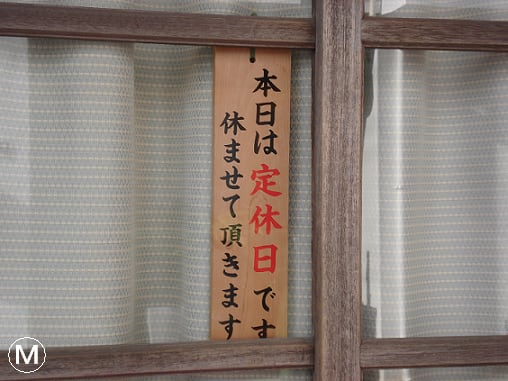 本日は定休日です
休ませて頂きます
M